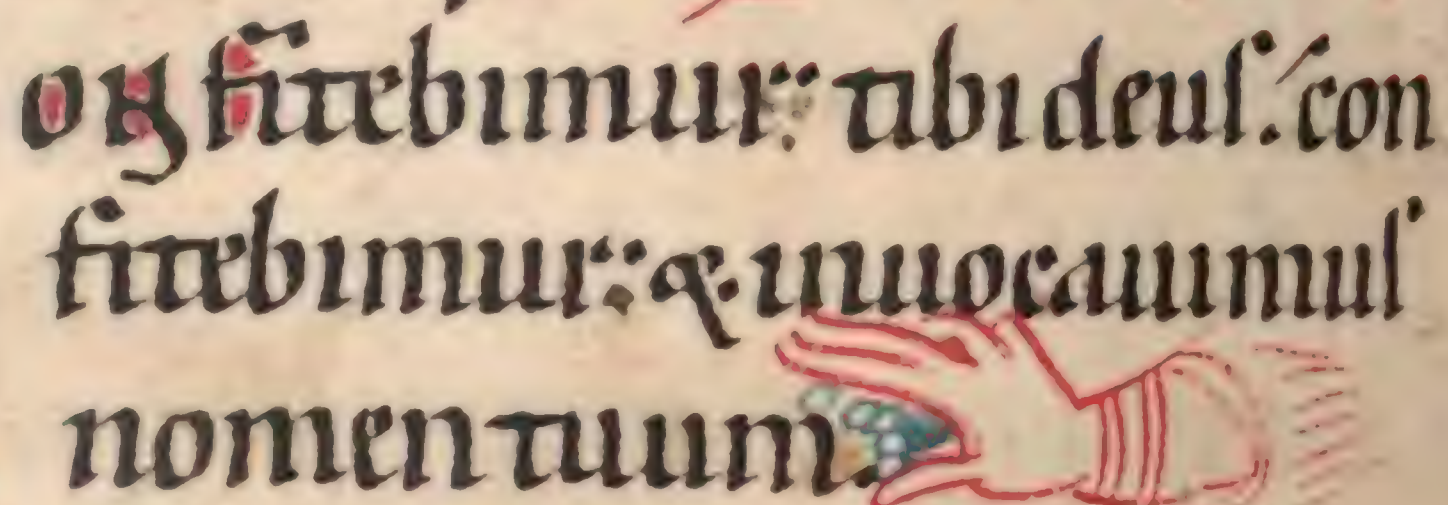 ON fitebimur: tibi deus. con
fitebimur: &. inuocauimus
nomen tuum.